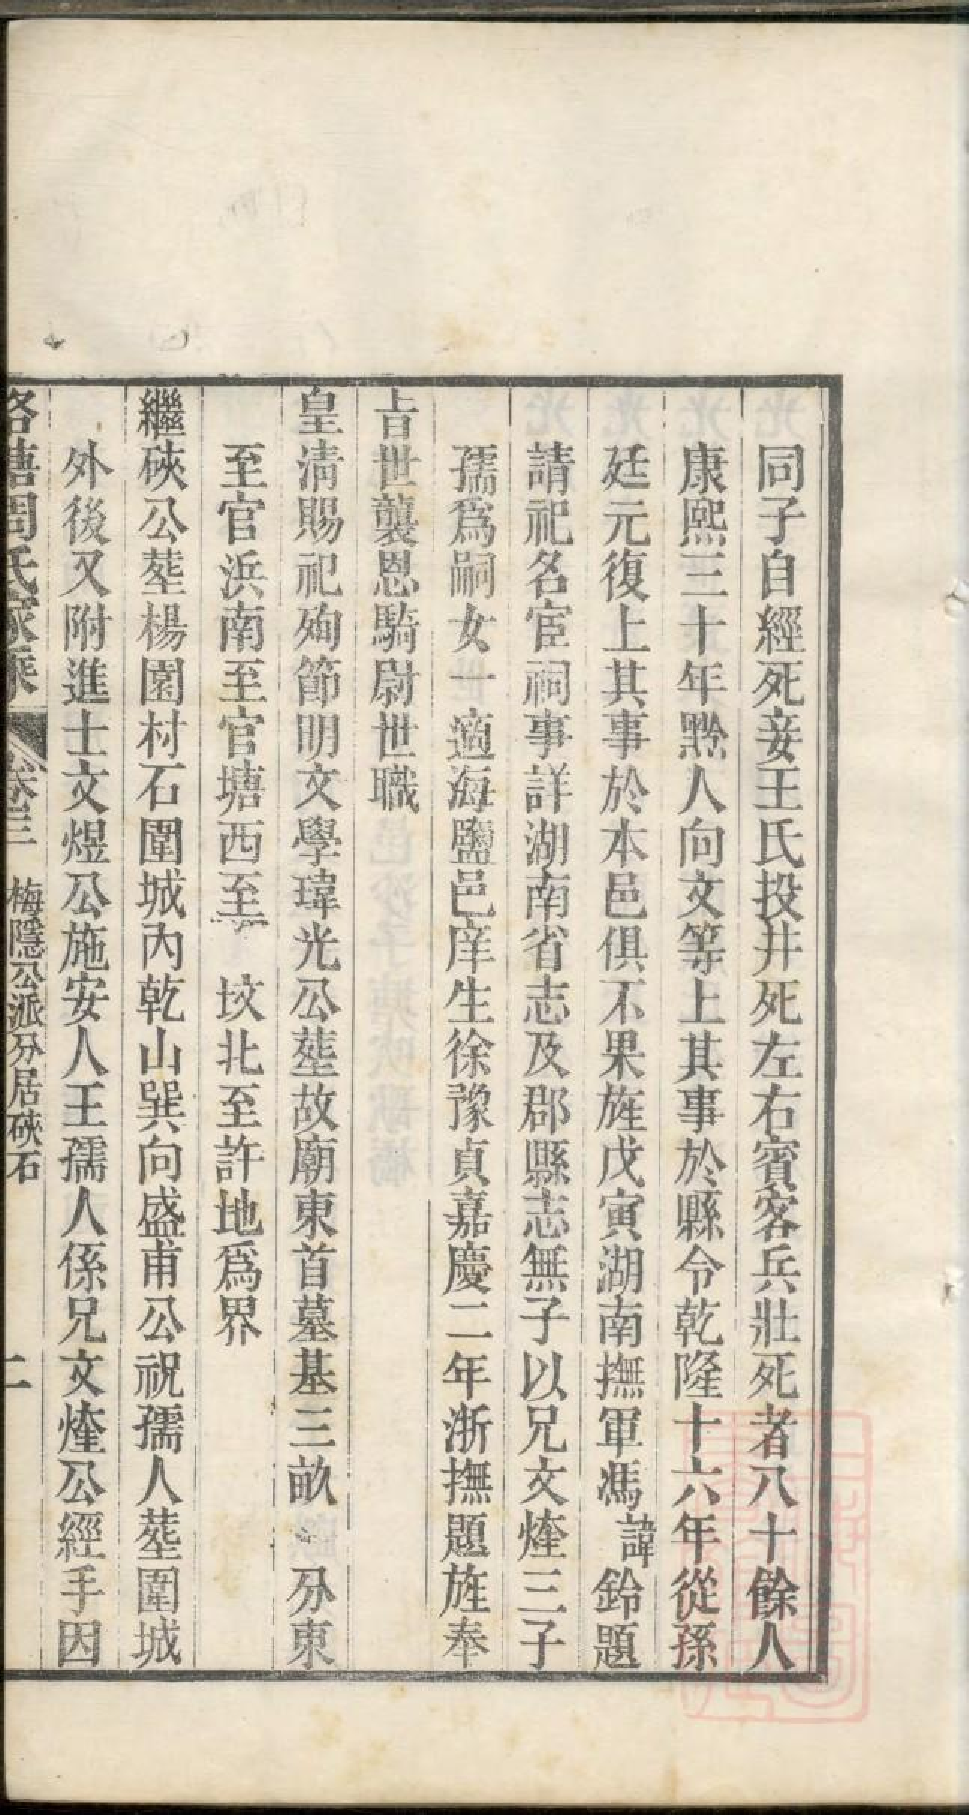 同子自經死妾王氏投井死左右賓客兵壯死者八十餘人
康熙三十年黔人向文等上其事於縣令乾隆十六年從孫
廷元復上其事於本邑俱不果旌戊寅湖南撫軍馮諱鈐題
請祀名宦祠事詳湖南省志及郡縣志無子以兄文煃三子
孺爲嗣女一適海鹽邑庠生徐豫貞嘉慶二年浙撫題旌奉
旨世襲恩騎尉世職
皇淸賜祀殉節明文學瑋光公塋故廟東首墓基三畝 分東
至官浜南至官塘西至 坟北至許地爲界
繼硤公塋楊園村石圍城內乾山巽向盛甫公祝孺人塋圍城
外後又附進士文煜公施安人王孺人係兄文煃公經手因
洛塘周氏家乘 卷三 梅隱公派分居硤石 二